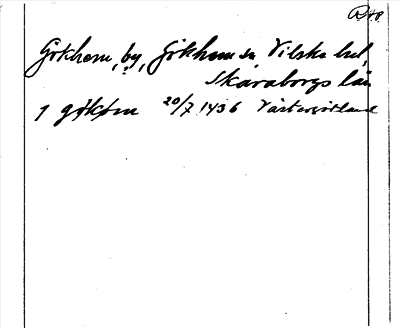 Gökhem, by, Gökhems sn Vilske hd,
Skaraborgs län
1 gøkøm 20/7 1436 Västergötland